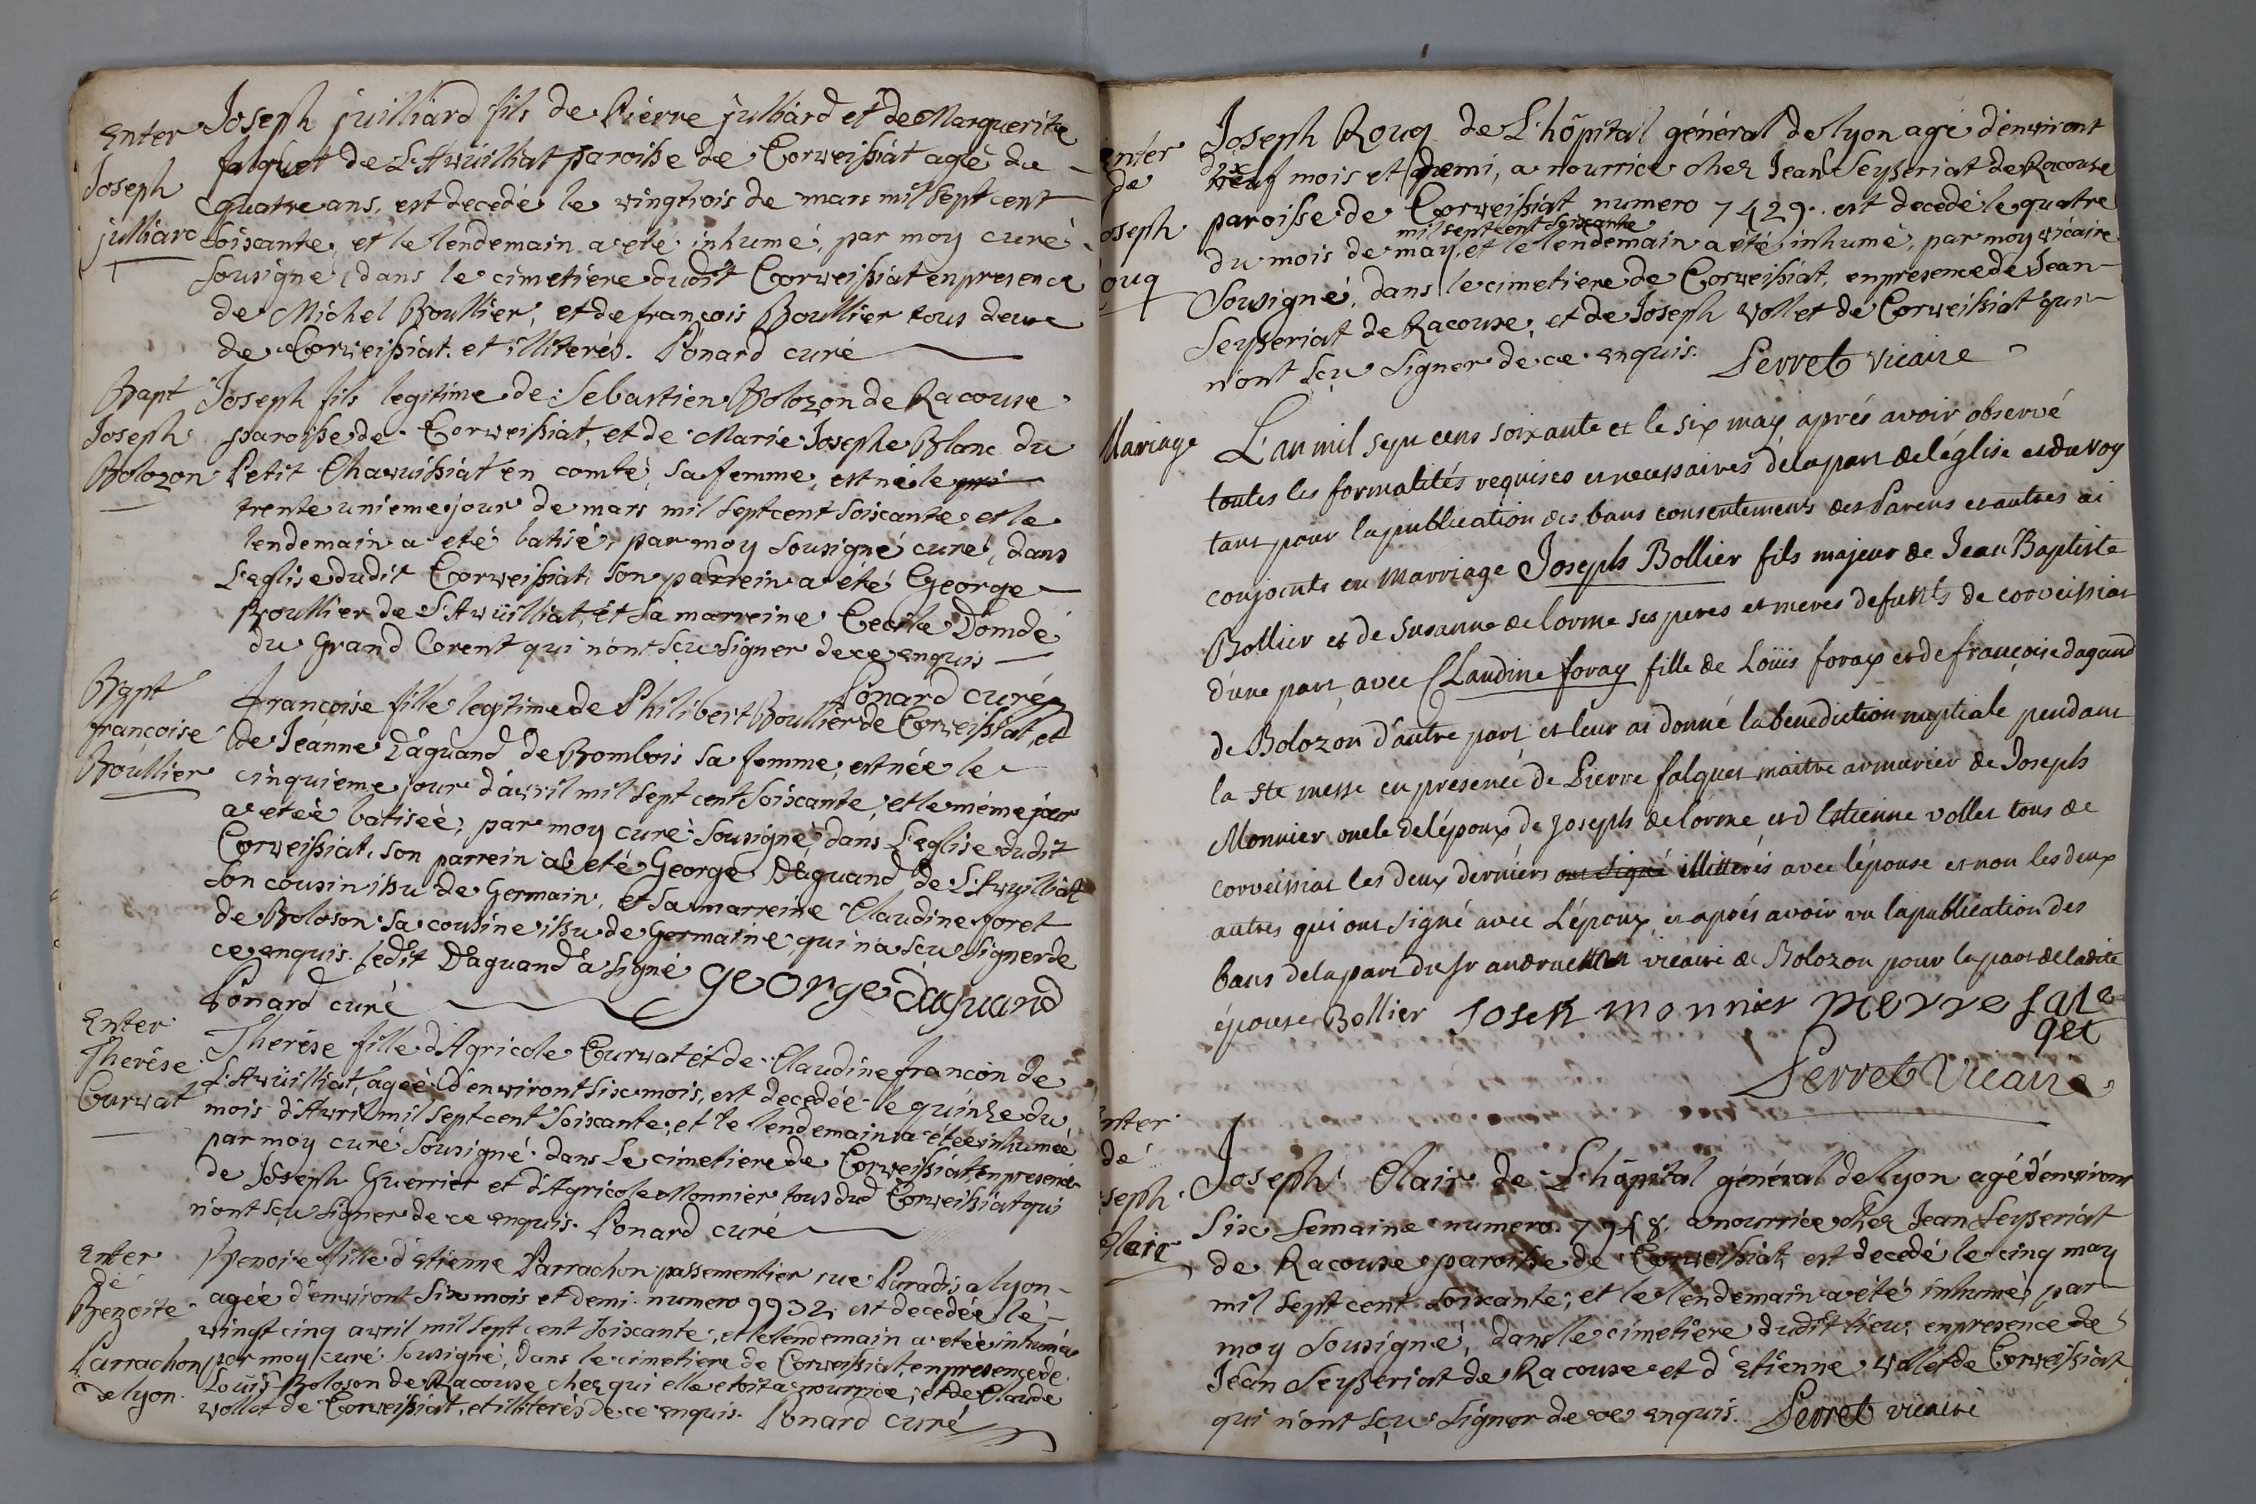 Enter
Joseph
julliard
Joseph juilliard fils de Pierre julliard et de Marguerite
falquet de L'Avüilliat paroisse de Corveissiat agé de
quatre ans, est decedé le vingtrois de mars mil sept cent
soixante, et le lendemain a eté inhumé, par moy curé
sousigné, dans le cimetiere dudit Corveissiat en presence
de Michel Boullier, et de françois Boullier tous deux
de Corveissiat. et illiterés. Ponard curé
Bapt
Joseph
Bolozon
Joseph fils legitime de Sebastien Bolozon de Racouse
paroisse de Corveissiat, et de Marie Josephe Blanc du
Petit Chavuissiat en comté, sa femme, est né le
trente unieme jour de mars mil sept cent soixante et le
lendemain a eté batisé, par moy sousigné curé, dans
L'eglise dudit Corveissiat, son parrein a été George
Boullier de L'Avüilliat, et sa marreine Cecile Domde
du Grand Corent qui n'ont sçu signer de ce enquis
Ponard curé
Bapt
françoise
Boullier
francoise fille legitime de Philibert Boullier de Corveissiat, et
de Jeanne Daguand de Bombois sa femme, est née le
cinquieme jour d'avril mil sept cent soixante, et le même jour
a eteé batiseé, par moy curé sousigné, dans L'eglise dudit
Corveissiat, son parrein a eté George Daguand, de L'Avuilliat
son cousin issu de Germain, et sa marreine Claudine foret
de Boloson sa cousine issu de Germaine, qui n'a sçeu signer de
ce enquis. ledit Daguand a signé George daguand
Ponard curé
Enter
Therése
Curvat
Therése fille d'Agricole Curvat et de Claudine francon de
L'Avüilliat, ageé d'environt six mois, est decedeé le quinze du
mois d'Avril mil sept cent soixante, et le lendemain a éteé inhumeé
par moy curé sousigné dans Le cimetiere de Corveissiat, en presence
de Joseph Guerrier et d'Agricole Monnier tous dud Corveissiat qui
n'ont sçu signer de ce enquis. Ponard curé
Enter
de
Benoite
Parrachon
de lyon.
Benoite fille d'Etienne Parrachon passementier rue Paradis a lyon
ageé d'environt six mois et demi. numero 9932, est decedeé le
vingt cinq avril mil sept cent soixante, et le lendemain a eteé inhumée
par moy curé sousigné, dans le cimetiere de Corveissiat, en presence de
Louis Boloson de Racouse chez qui elle etoit a nourrice, et de Claude
vollet de Corveissiat, et illiterés de ce enquis. Ponard curé
enter
de
oseph
ouq
Joseph Rouq de L'hôpital général de lyon agé d'environt
neuf mois et demi, a nourrice chez Jean Seyseriat de Racouse
paroisse de Corveissiat numero 7429. est decedé le quatre
mil sept cent soixante
du mois de may, et le lendemain a été inhumé, par moy vicaire
sousigné, dans le cimetiere de Corveissiat, en presence de Jean
Seyseriat de Racouse, et de Joseph vollet de Corveissiat qui
n'ont sçu signer de ce enquis. Perret vicaire
Mariage
L'an mil sept cens soixante et le six may aprés avoir observé
toutes les formalités requises et necessaires de la part de l'église et du roy
tant pour la publication des bans consentements des Parens et autres ai
conjoints en Marriage Joseph Bollier fils majeur de Jean Baptiste
Bollier et de Susanne de lorme ses peres et meres defunts de corveissiat
d'une part, avec CLaudine foray fille de Loüis foray et de françoise dagand
de Bolozon d'autre part et leur ai donné la benediction nuptiale pendant
la ste messe en presence de Pierre falquet maitre armurier de Joseph
Monnier oncle de l'époux de Joseph de lorme et d'Estienne vollet tous de
corveissiat les deux derniers ont signé illitterés avec l'épouse et non les deux
autres qui ont signé avec L'époux, et aprés avoir vu la publication des
bans de la part du sr vicaire de Bolozon pour la part de ladite
épouse Bollier Joseh monnier pierre fal
qet
Perret Vicaire
nter
de
seph
Clair
Joseph Clair de L'hôpital général de lyon agé d'environt
six semaine numero a nourrice chez Jean Seyseriat
de Racouse paroisse de Corveissiat, est decedé le cinq may
mil sept cent soixante, et le lendemain a été inhumé, par
moy sousigné, dans le cimetiere dudit lieu, en presence de
Jean Seyseriat de Racouse et d'Etienne vollet de Corveissiat
qui n'ont sçu signer de ce enquis. Perret vicaire